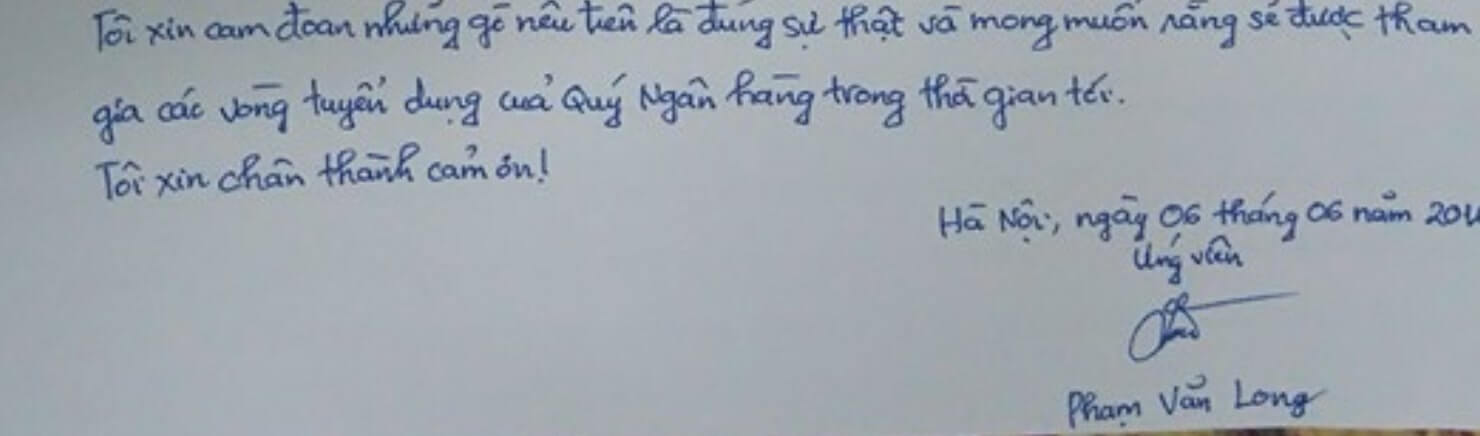 Tôi xin cam đoan những gì nêu trên là đúng sự thật và mong muốn rằng sẽ được tham
gia các vòng tuyển dụng của Quý Ngân hàng trong thời gian tới.
Tôi xin chân thành cảm ơn!
Hà Nội, ngày 06 tháng 06 năm
Ứng viên
Phạm Văn Long